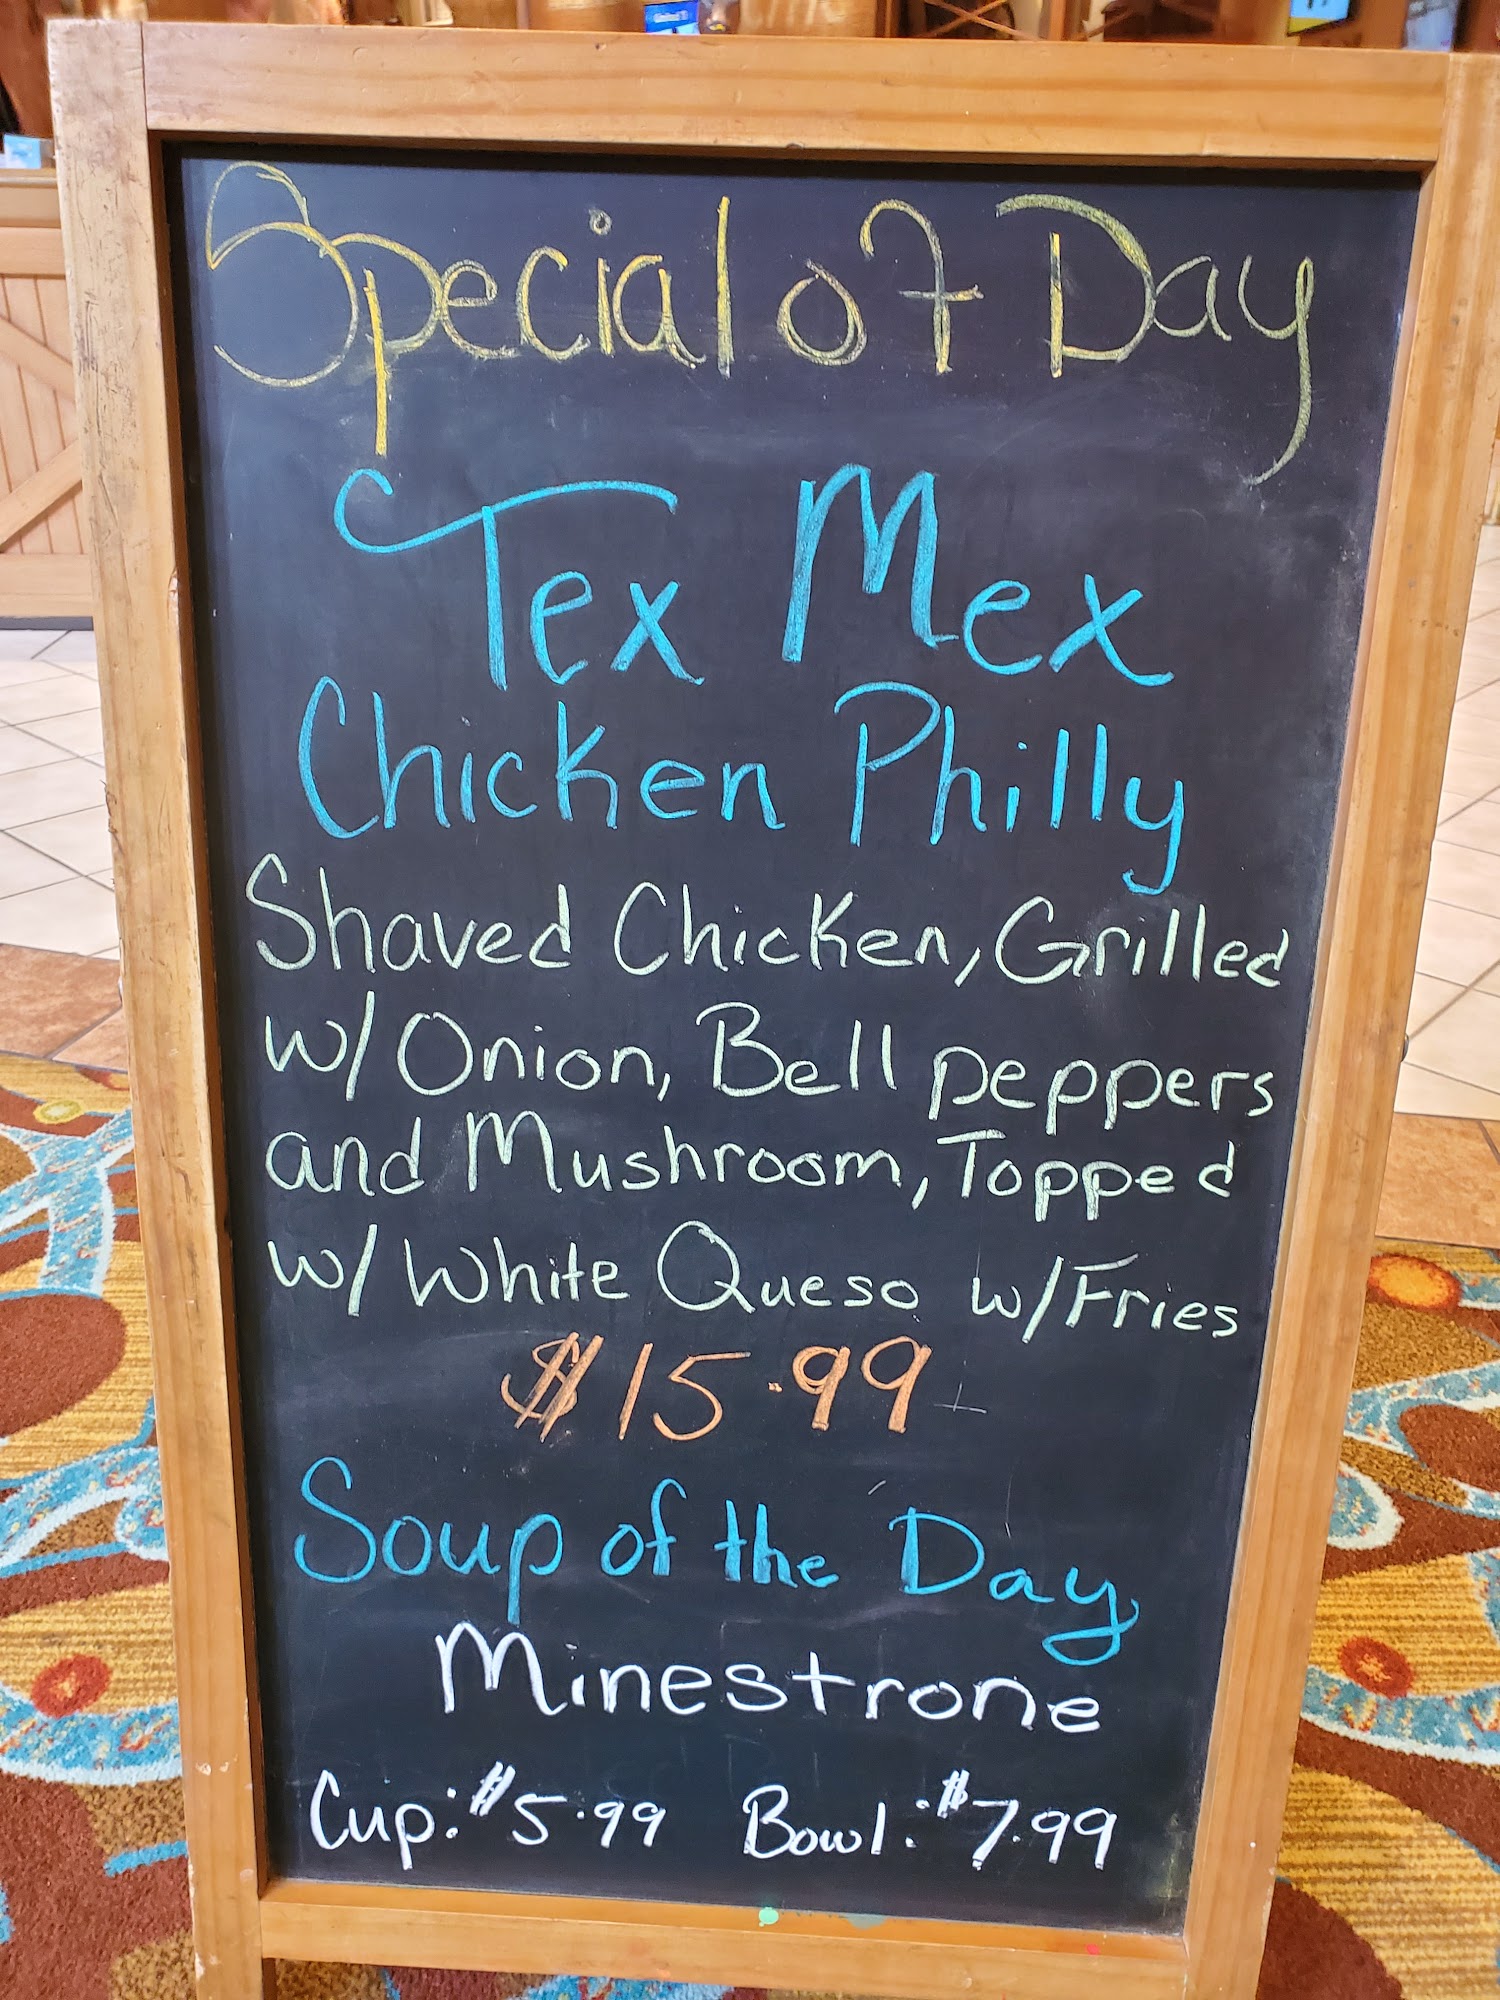 Special of Day
Tex Mex
Chicken Philly
Shaved Chicken, Grilled
w/ Onion, Bell peppers
and Mushroom, Topped
w/ White Queso w/ Fries
$15.99
Soup of the Day
Minestrone
Cup: $5.99 Bowl: $7.99